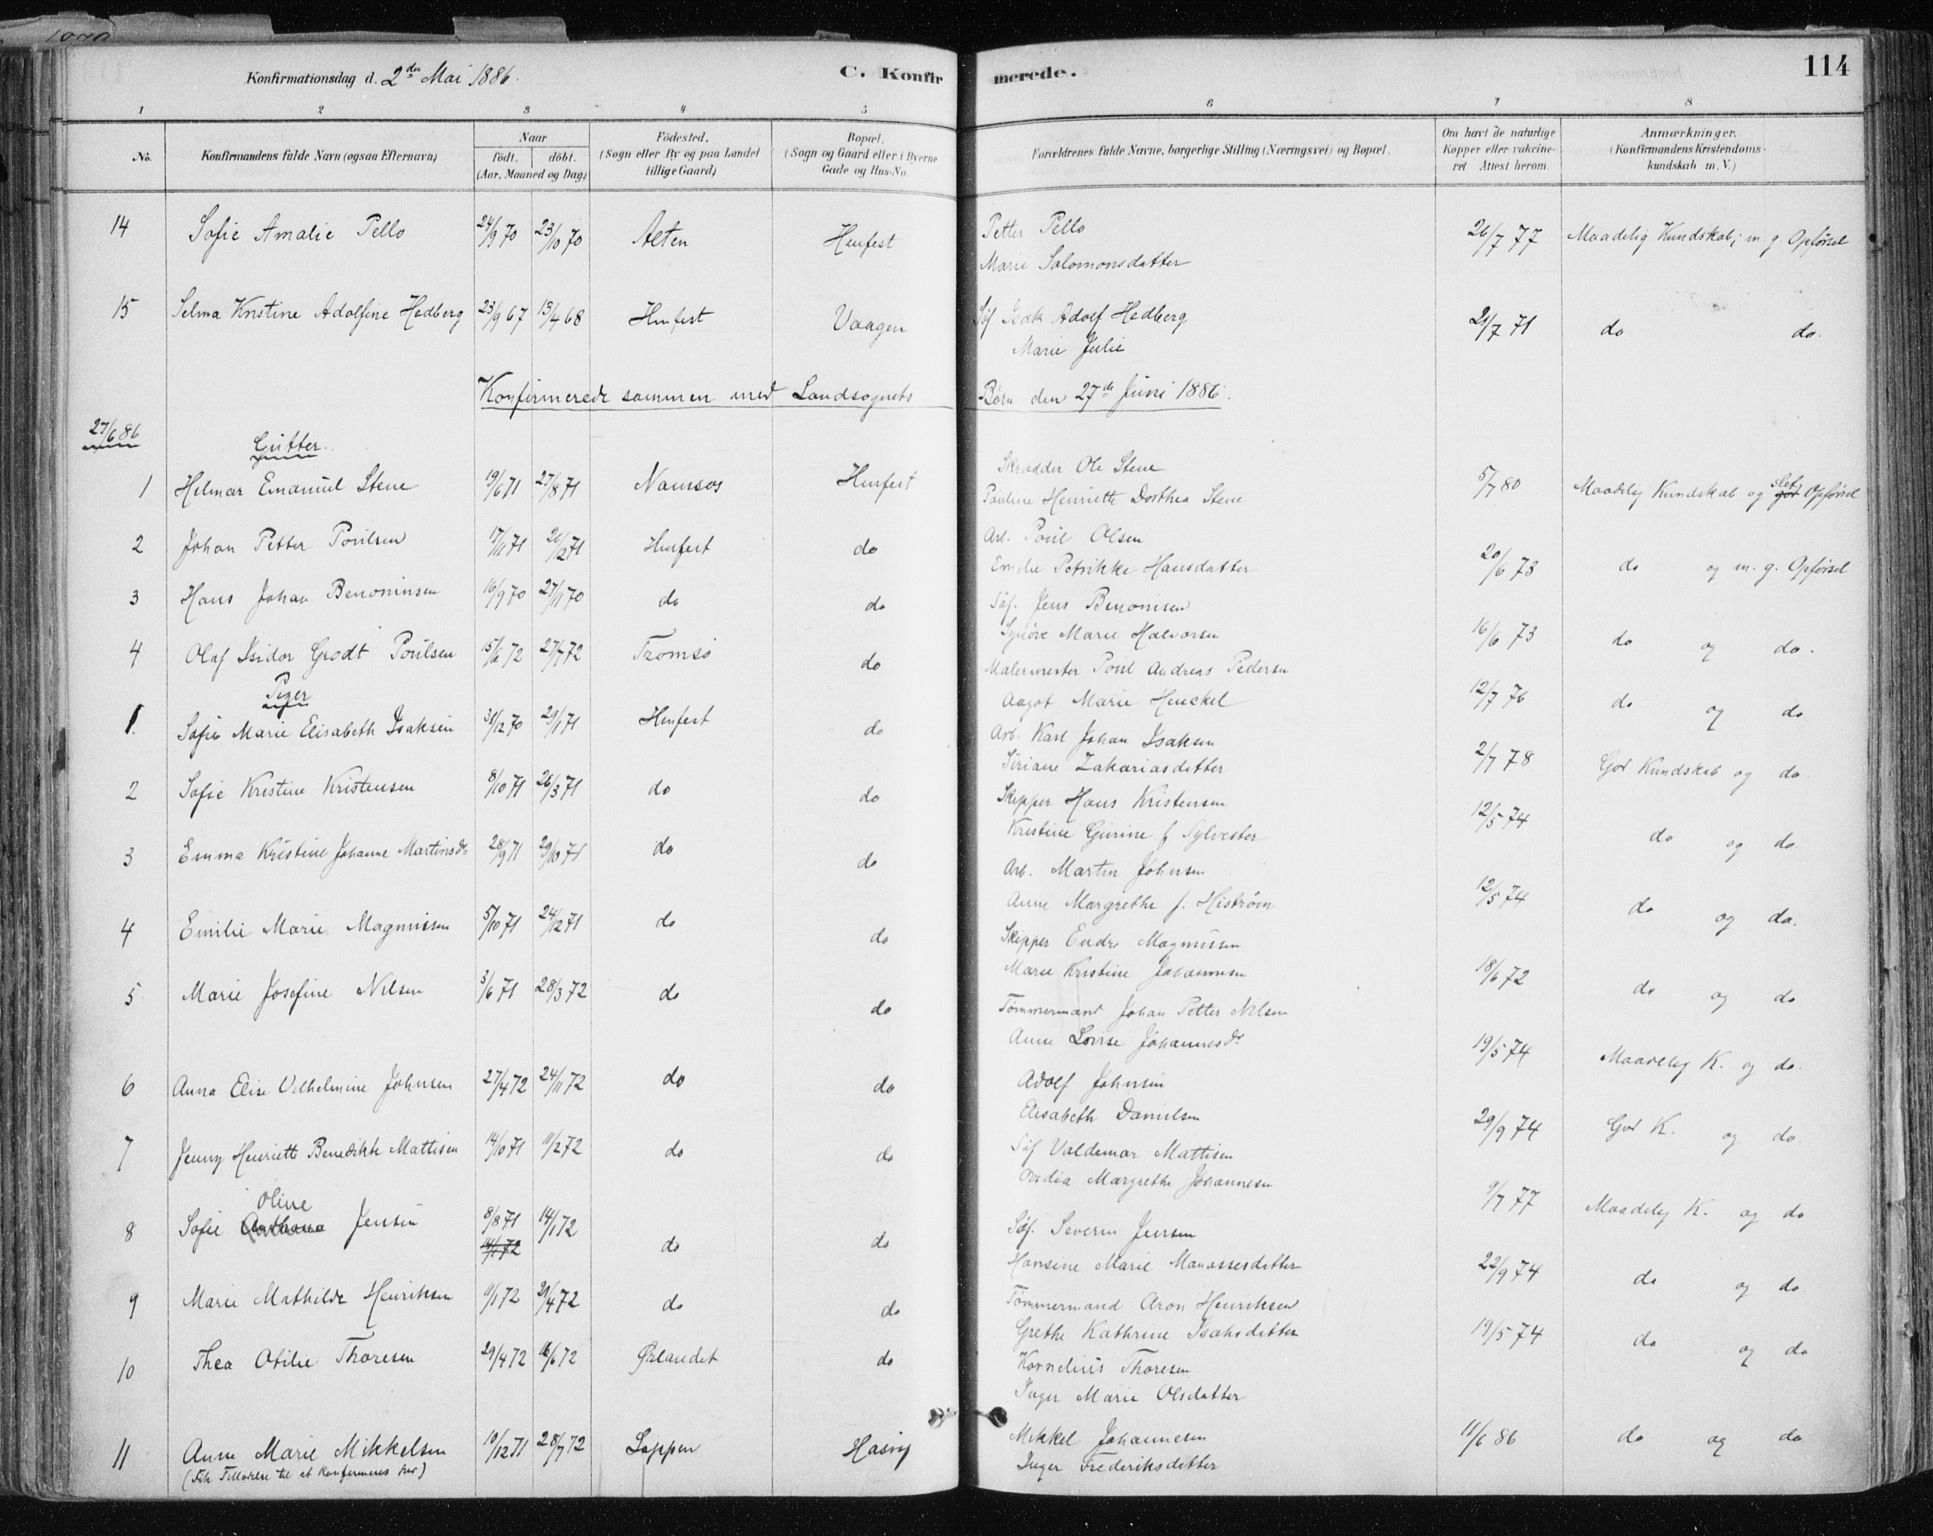 Konfirmationsdag d. 2den Mai 1886. C. Konfirmerede. 114
1 2 3 4 5 6 7 8
No. Konfirmandens fulde Navn (ogsaa Efternavn) Naar födt. döbt. (Aar, Maaned og Dag) Födested. (Sogn eller By og paa Landet tillige Gaard) Bopæl. (Sogn og Gaard eller i Byerne Gade og Hus-No. Forældrenes fulde Navne, borgerlige Stilling (Næringsvei) og Bopæl. Om havt de naturlige Kopper eller vakcineret Attest herom. Anmærkninger. (Konfirmandens Kristendomskundskab m. V.)
14 Sofie Amalie Pello 24/9 70 23/10 70 Alten Hmfest Petter Pello 26/7 77 Maadelig Kundskab; m. g. Opførsel
Marie Salomonsdatter
15 Selma Kristine Adolfine Hedberg 23/9 67 13/4 68 Hmfest Vaagen Søf Isak Adolf Hedberg 21/7 71 do do.
Marie Julie
Konfirmerede sammen med Landsognets Børn den 27de Juni 1886.
27/6 86
Gutter.
1 Helmar Emanuel Stene 19/6 71 27/8 71 Namsos Hmfest Skrædder Ole Stene 5/7 80 Maadelig Kundskab og slet Opførsel
Pauline Henriette Dorthea Stene
2 Johan Petter Poulsen 17/11 71 21/12 71 Hmfest do Arb. Poul Olsen 20/6 73 do og m. g. Opførsel
Emelie Petrikke Hansdatter
3 Hans Johan Benoninsen 16/9 70 27/11 70 do do Søf. Jens Benonisen 16/6 73 do og do.
Synøve Marie Halvorsen
4 Olaf Isidor Grodt Poulsen 15/6 72 27/7 72 Tromsø do Malermester Poul Andreas Pedersen 12/7 76 do og do
Aagot Marie Henckel
Piger
1. Sofie Marie Elisabeth Isaksen 31/12 70 29/1 71 Hmfest do Arb. Karl Johan Isaksen 2/7 78 God Kundskab og do.
Siriane Zakariasdatter
2 Sofie Kristine Kristensen 8/10 71 26/3 71 do do Skipper Hans Kristensen 12/5 74 do og do.
Kristine Gurine f Sylvester
3 Emma Kristine Johanne Martinsdr 28/9 71 29/10 71 do do Arb. Martin Johnsen 12/5 74 do og do.
Anne Margrethe f. Histrøm
4 Emilie Marie Magnussen 5/10 71 24/12 71 do do Skipper Endre Magnussen 18/6 72 do og do
Marie Kristine Johannesen
5 Marie Josefine Nilsen 3/6 71 28/3 72 do do Tømmermand Johan Petter Nilsen 19/5 74 Maadelig K. og do.
Anne Lovise Johannesdr
6 Anna Elise Vilhelmine Johnsen 27/4 72 24/11 72 do do Adolf Johnsen 29/9 74 God K. og do.
Elisabeth Danielsen
7 Jenny Henriette Benedikte Mattisen 14/10 71 11/2 72 do do Søf Valdemar Mattisen 9/7 77 Maadelig K. og do
Ovedia Margrethe Johannesen
8 Sofie Oline Jensen 8/8 71 14/1 72 do do Søf. Severin Jensen 22/9 74 do og do.
14/1 72 Hansine Marie Manassesdatter
9 Marie Mathilde Henriksen 11/1 72 21/4 72 do do Tømmermand Aron Henriksen 19/5 74 do og do
Grethe Kathrine Isaksdatter
10 Thea Otilie Thoresen 29/4 72 16/6 72 Ørlandet do Kornelius Thoresen
Inger Marie Olsdatter
11 Anne Marie Mikkelsen 10/12 71 28/7 72 Loppen Hasvig Mikkel Johannesen 11/6 86 do og do
(Fik Tilladelse til at konfirmeres her) Inger Frederiksdatter